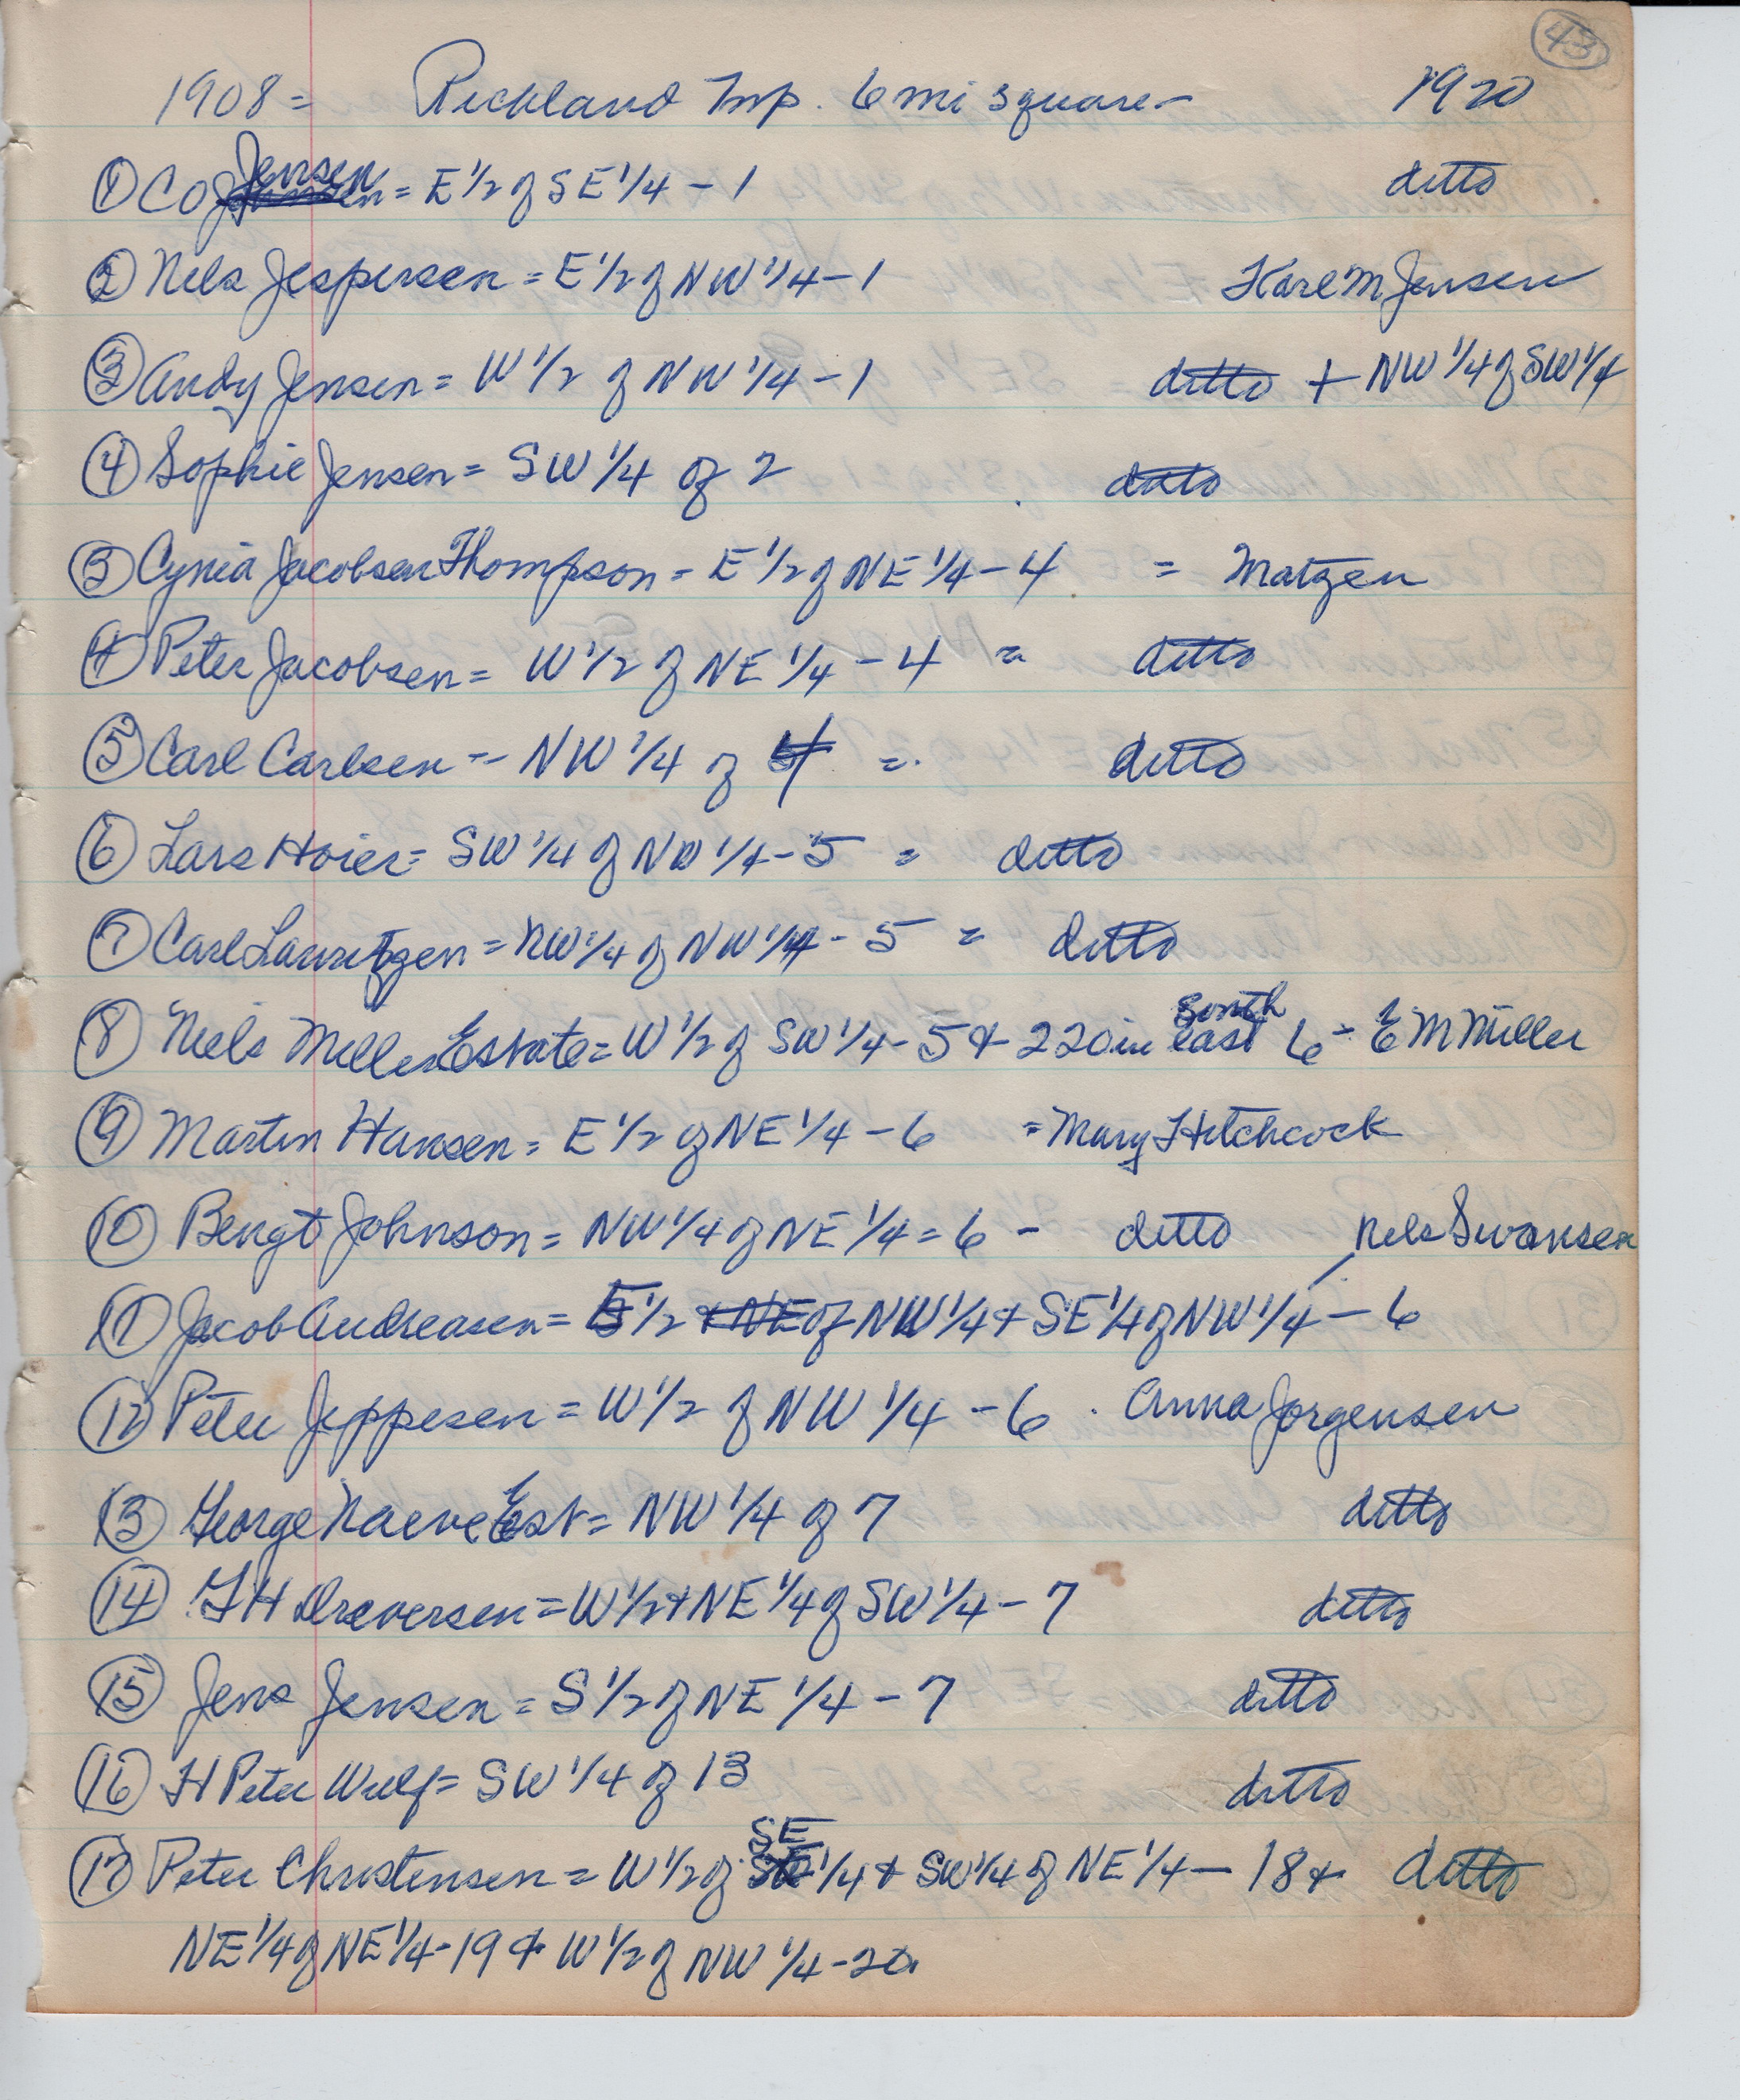 43
1908 = Richland Twp. 6 mi square - 1920
① C O Jensen = E 1/2 of SE 1/4 - 1 ditto
② Nels Jespersen = E 1/2 of NW 1/4 - 1 Karl M Jensen
③ Andy Jensen = W 1/2 of NW 1/4 - 1 ditto + NW 1/4 of SW 1/4
④ Sophie Jensen = SW 1/4 of 2 ditto
③ Jacobsen Thompson = E 1/2 of NE 1/4 - 4 = Matzen
④ Peter Jacobsen = W 1/2 of NE 1/4 - 4 = ditto
⑤ Carl Carlsen - NW 1/4 of 4 = ditto
⑥ Lars Hoier = SW 1/4 of NW 1/4 - 5 = ditto
⑦ Carl Lauritzen = NW 1/4 of NW 1/4 - 5 = ditto
⑧ Niels Miller Estate = W 1/2 of SW 1/4 - 5 & 220 in south east 6 = E M Miller
⑨ Martin Hansen = E 1/2 of NE 1/4 - 6 = Mary Hitchcock
⑩ Bengt Johnson = NW 1/4 of NE 1/4 = 6 - ditto Nels Swansen
⑪ Jacob Andreasen = E 1/2 of NW 1/4 + SE 1/4 of NW 1/4 - 6
⑫ Peter Jeppesen = W 1/2 of NW 1/4 - 6 . Anna Jorgensen
⑬ George Naeve Est = NW 1/4 of 7 ditto
⑭ H Dreversen = W 1/2 + NE 1/4 of SW 1/4 - 7 ditto
⑮ Jens Jensen = S 1/2 of NE 1/4 - 7 ditto
⑯ H Peter Wulf = SW 1/4 of 13 ditto
⑰ Peter Christensen = W 1/2 of SE 1/4 & SW 1/4 of NE 1/4 - 18 & ditto
NE 1/4 of NE 1/4 - 19 & W 1/2 of NW 1/4 - 20